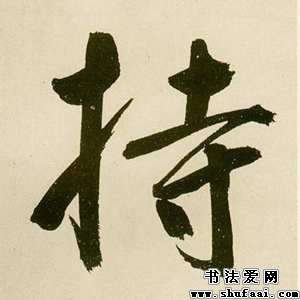 持
书法爱网
www.shufaai.com